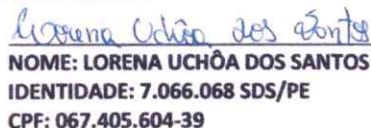 Lorena Uchôa dos Santos
NOME: LORENA UCHÔA DOS SANTOS
IDENTIDADE: 7.066.068 SDS/PE
CPF: 067.405.604-39